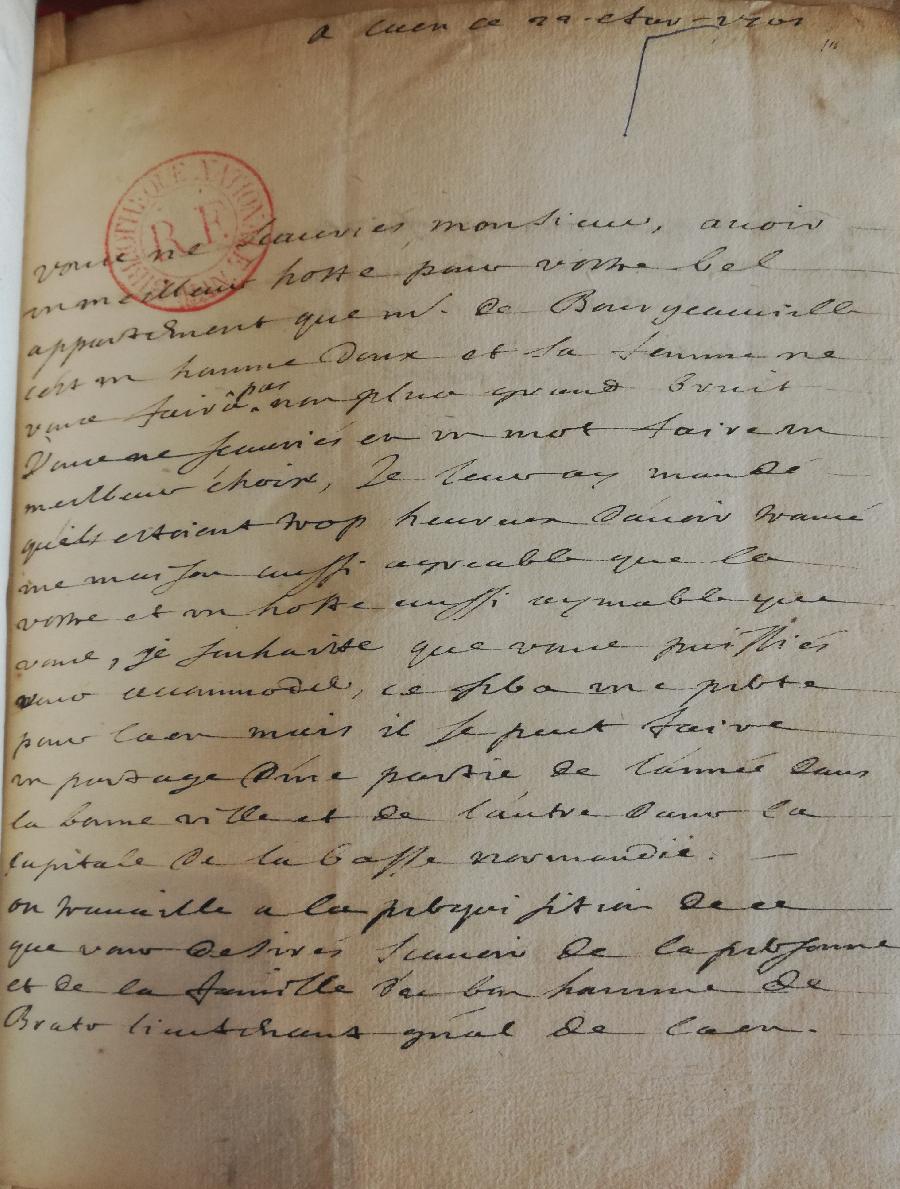 a Caen ce 22 - 1701
BIBLIOTHEQUE NATIONALE
R.F.
vous ne scauriés monsieur, avoir
un meilleur hoste pour vostre bel
appartement que mr. de Bourgeauville
cest un homme doux et sa femme ne
vous faira pas non plus grand bruit
Vous ne scauriés en un mot faire un
meilleur choix, Je leur ay mandé
quils estoient trop heureux davoir trouvé
une maison aussi agreable que la
vostre et un hoste aussi aymable que
vous, je souhaitte que vous puissiés
vous accommoder, ce sera une perte
pour Caen mais il se peut faire
un partage d'une partie de l'année dans
la bonne ville et de l'autre dans la
capitale de la basse normandie.
on travaille a la perquisition de ce
que vous desirés scavoir de la personne
et de la famille du bon homme de
Bratz lieutenant gnal de Caen.